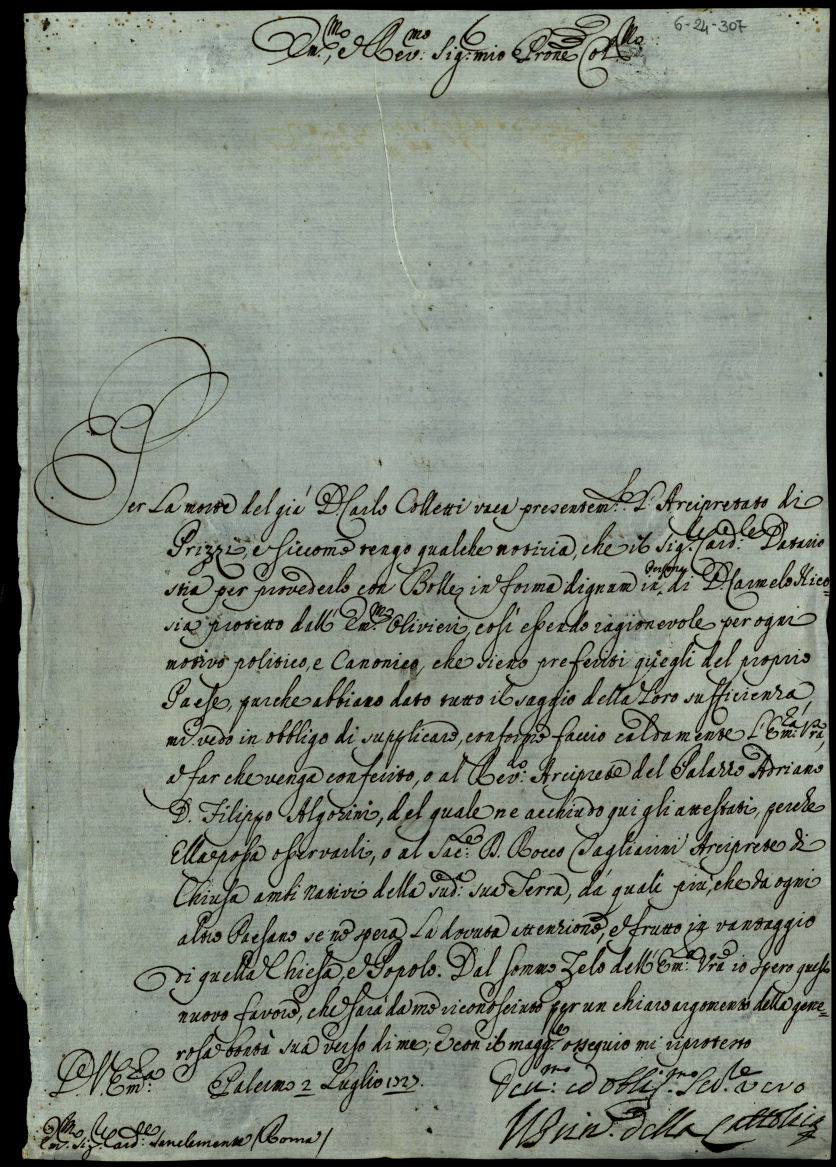 6-24-307
Em.mo, e Rev.mo Sig.r mio P̃rone Col.mo
Per La morte del già D. Carlo Colletti vaca presentem.te l'Arcipretato di
Prizzi, e siccome tengo qualche notizia, che il Sig.r Card.le Datario
stia per provederlo con Bolle in forma dignum in persona di D. Carmelo Nico=
sia protetto dall'Em.mo Olivieri, così essendo ragionevole per ogni
motivo politico, e Canonico, che sieno preferiti quegli del proprio
Paese, purche abbiano dato tutto il saggio della Loro sufficienza
mi vedo in obbligo di supplicare, conforme faccio caldamente L'Em.za Vr̃a,
a far che venga conferito, o al Rev.o Arciprete del Palazzo Adriano
D. Filippo Algozini, del quale ne acchiudo qui gli attestati, perche
Ella possa osservarli, o al Sac.e D. Rocco Tagliarini Arciprete di
Chiusa ambi nativi della sud.a sua Terra, da quali più, che da ogni
altro Paesano se ne spera La dovuta attenzione, e frutto in vantaggio
di quella Chiesa, e Popolo. Dal sommo Zelo dell'Em.za Vr̃a io spero questo
nuovo favore, che sarà da me riconosciuto per un chiaro argomento della gene=
rosa bontà sua verso di me; e con il magg.r osseguio mi riprotesto
D. V. Em.za Palermo 2 Luglio 1727.
Dev.mo ed Obblig.mo Ser.re vero
Em.mo Sig.r Card.le Sanclemente (Roma)
Il Prin.e della Cattolica